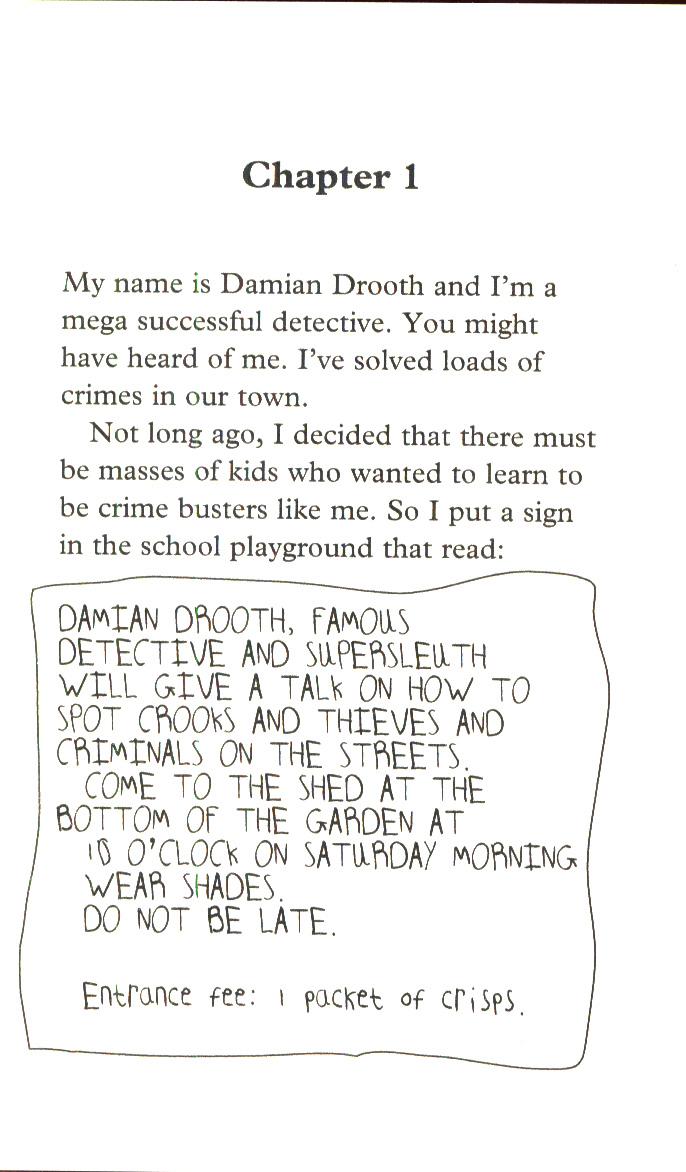 Chapter 1
My name is Damian Drooth and I'm a
mega successful detective. You might
have heard of me. I've solved loads of
crimes in our town.
Not long ago, I decided that there must
be masses of kids who wanted to learn to
be crime busters like me. So I put a sign
in the school playground that read:
DAMIAN DROOTH, FAMOUS
DETECTIVE AND SUPERSLEUTH
WILL GIVE A TALK ON HOW TO
SPOT CROOKS AND THIEVES AND
CRIMINALS ON THE STREETS.
COME TO THE SHED AT THE
BOTTOM OF THE GARDEN AT
10 O'CLOCK ON SATURDAY MORNING
WEAR SHADES.
DO NOT BE LATE.
Entrance fee: 1 packet of crisps.